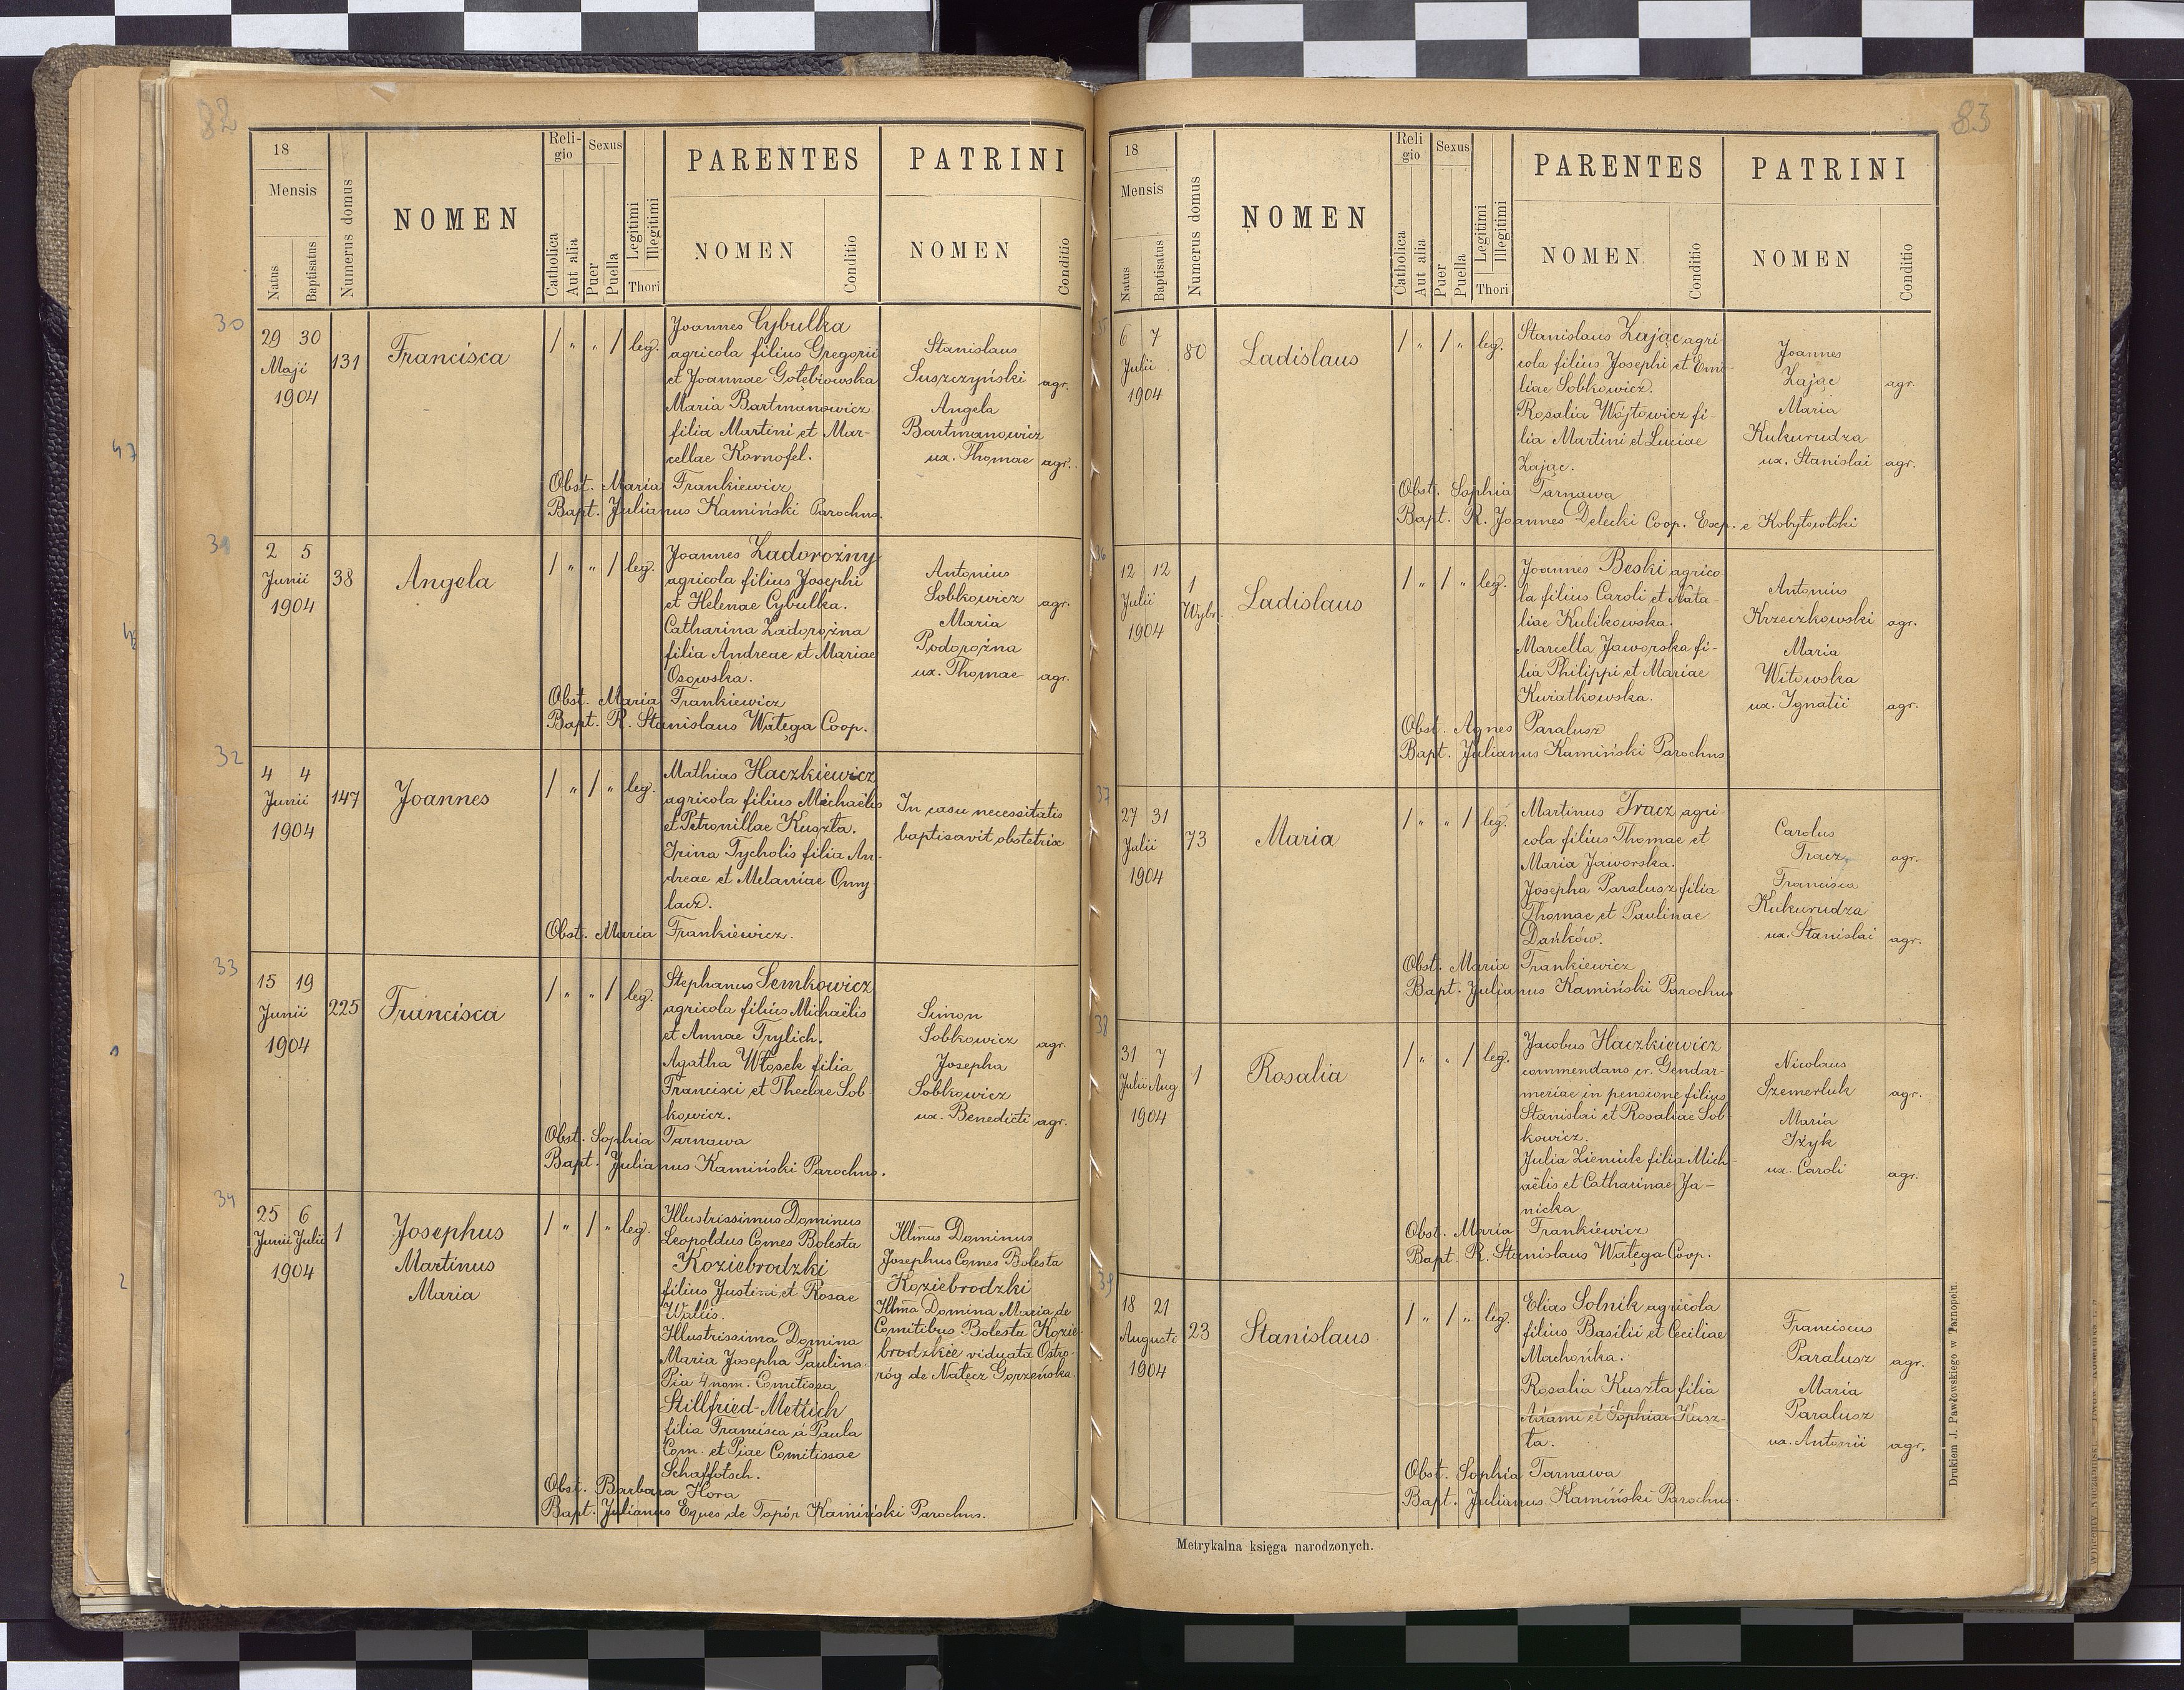 82
18
Mensis
Natus
Baptisatus
Numerus domus
NOMEN
Reli-
gio
Catholica
Aut alia
Sexus
Puer
Puella
Legitimi
Illegitimi
Thori
PARENTES
NOMEN
Conditio
PATRINI
NOMEN
Conditio
30
29 30
Maji
1904
131
Francisca
/ " " / leg.
Joannes Cybulka
agricola filius Gregorii
et Joannae Gołębiowska
Maria Bartmanowicz
filia Martini et Mar-
cellae Kornofel.
Stanislaus
Suszczyński agr.
Angela
Bartmanowicz
ux. Thomae agr.
Obst. Maria Frankiewicz
Bapt. Julianus Kamiński Parochus.
31
2 5
Junii
1904
38
Angela
/ " " / leg.
Joannes Zadorożny
agricola filius Josephi
et Helenae Cybulka.
Catharina Zadorożna
filia Andreae et Mariae
Osowska.
Antonius
Sobkowicz agr.
Maria
Podorożna
ux. Thomae agr.
Obst. Maria Frankiewicz
Bapt. R. Stanislaus Wałęga Coop.
32
4 4
Junii
1904
147
Joannes
/ " / " leg.
Mathias Haczkiewicz
agricola filius Michaëlis
et Petronillae Kuszta.
Irina Tycholis filia An-
dreae et Melaniae Omy
lacz.
In casu necessitatis
baptisavit obstetrix
Obst. Maria Frankiewicz.
33
15 19
Junii
1904
225
Francisca
/ " " / leg.
Stephanus Semkowicz
agricola filius Michaëlis
et Annae Trylich.
Agatha Włosek filia
Francisci et Theclae Sob-
kowicz.
Simon
Sobkowicz agr.
Josepha
Sobkowicz
ux. Benedicti agr.
Obst. Sophia Tarnawa
Bapt. Julianus Kamiński Parochus.
34
25 6
Junii Julii
1904
1
Josephus
Martinus
Maria
/ " / " leg.
Illustrissimus Dominus
Leopoldus Comes Bolesta
Koziebrodzki
filius Justini et Rosae
Wallis.
Illustrissima Domina
Maria Josepha Paulina
Pia 4 nom. Comitissa
Stillfried-Mettich
filia Francisca á Paula
Com. et Piae Comitissae
Schaffotsch.
Illmus Dominus
Josephus Comes Bolesta
Koziebrodzki
Illma Domina Maria de
Comitibus Bolesta Kozie-
brodzkie viduata Ostro-
róg de Nałęcz Gorzeńska
Obst. Barbara Hora
Bapt. Julianus Eques de Topór Kamiński Parochus.
47
48
2
83
18
Mensis
Natus
Baptisatus
Numerus domus
NOMEN
Reli
gio
Catholica
Aut alia
Sexus
Puer
Puella
Legitimi
Illegitimi
Thori
PARENTES
NOMEN
Conditio
PATRINI
NOMEN
Conditio
35
6 7
Julii
1904
80
Ladislaus
/ " / " leg.
Stanislaus Zając agri
cola filius Josephi et Emi-
liae Sobkowicz.
Rosalia Wójtowicz fi-
lia Martini et Luciae
Zając.
Joannes
Zając agr.
Maria
Kukurudza
ux. Stanislai agr.
Obst. Sophia Tarnawa
Bapt. R. Joannes Delecki Coop. Exp. e Kobyłowłoki
36
12 12
Julii
1904
1
Wybr.
Ladislaus
/ " / " leg.
Joannes Beski agrico
la filius Caroli et Nata-
liae Kulikowska.
Marcella Jaworska fi-
lia Philippi et Mariae
Kwiatkowska.
Antonius
Krzeczkowski agr.
Maria
Witowska
ux. Ignatii agr.
Obst. Agnes Paralusz
Bapt. Julianus Kamiński Parochus.
37
27 31
Julii
1904
73
Maria
/ " " / leg.
Martinus Tracz agri
cola filius Thomae et
Maria Jaworska.
Josepha Paralusz filia
Thomae et Paulinae
Dańków.
Carolus
Tracz agr.
Francisca
Kukurudza
ux. Stanislai agr.
Obst. Maria Frankiewicz
Bapt. Julianus Kamiński Parochus
38
31 7
Julii Aug.
1904
1
Rosalia
/ " " / leg.
Jacobus Haczkiewicz
commendans cr. Gendar-
meriae in pensione filius
Stanislai et Rosaliae Sob
kowicz.
Julia Zieniuk filia Mich-
aëlis et Catharinae Ja-
nicka
Nicolaus
Szemerluk agr.
Maria
Iżyk
ux. Caroli agr.
Obst. Maria Frankiewicz
Bapt. R. Stanislaus Wałęga Coop.
39
18 21
Augusti
1904
23
Stanislaus
/ " / " leg.
Elias Solnik agricola
filius Basilii et Ceciliae
Machońka.
Rosalia Kuszta filia
Adami et Sophiae Kusz-
ta.
Franciscus
Paralusz agr.
Maria
Paralusz
ux. Antonii agr.
Obst. Sophia Tarnawa
Bapt. Julianus Kamiński Parochus.
Metrykalna księga narodzonych.
Drukiem J. Pawłowskiego w Tarnopolu.